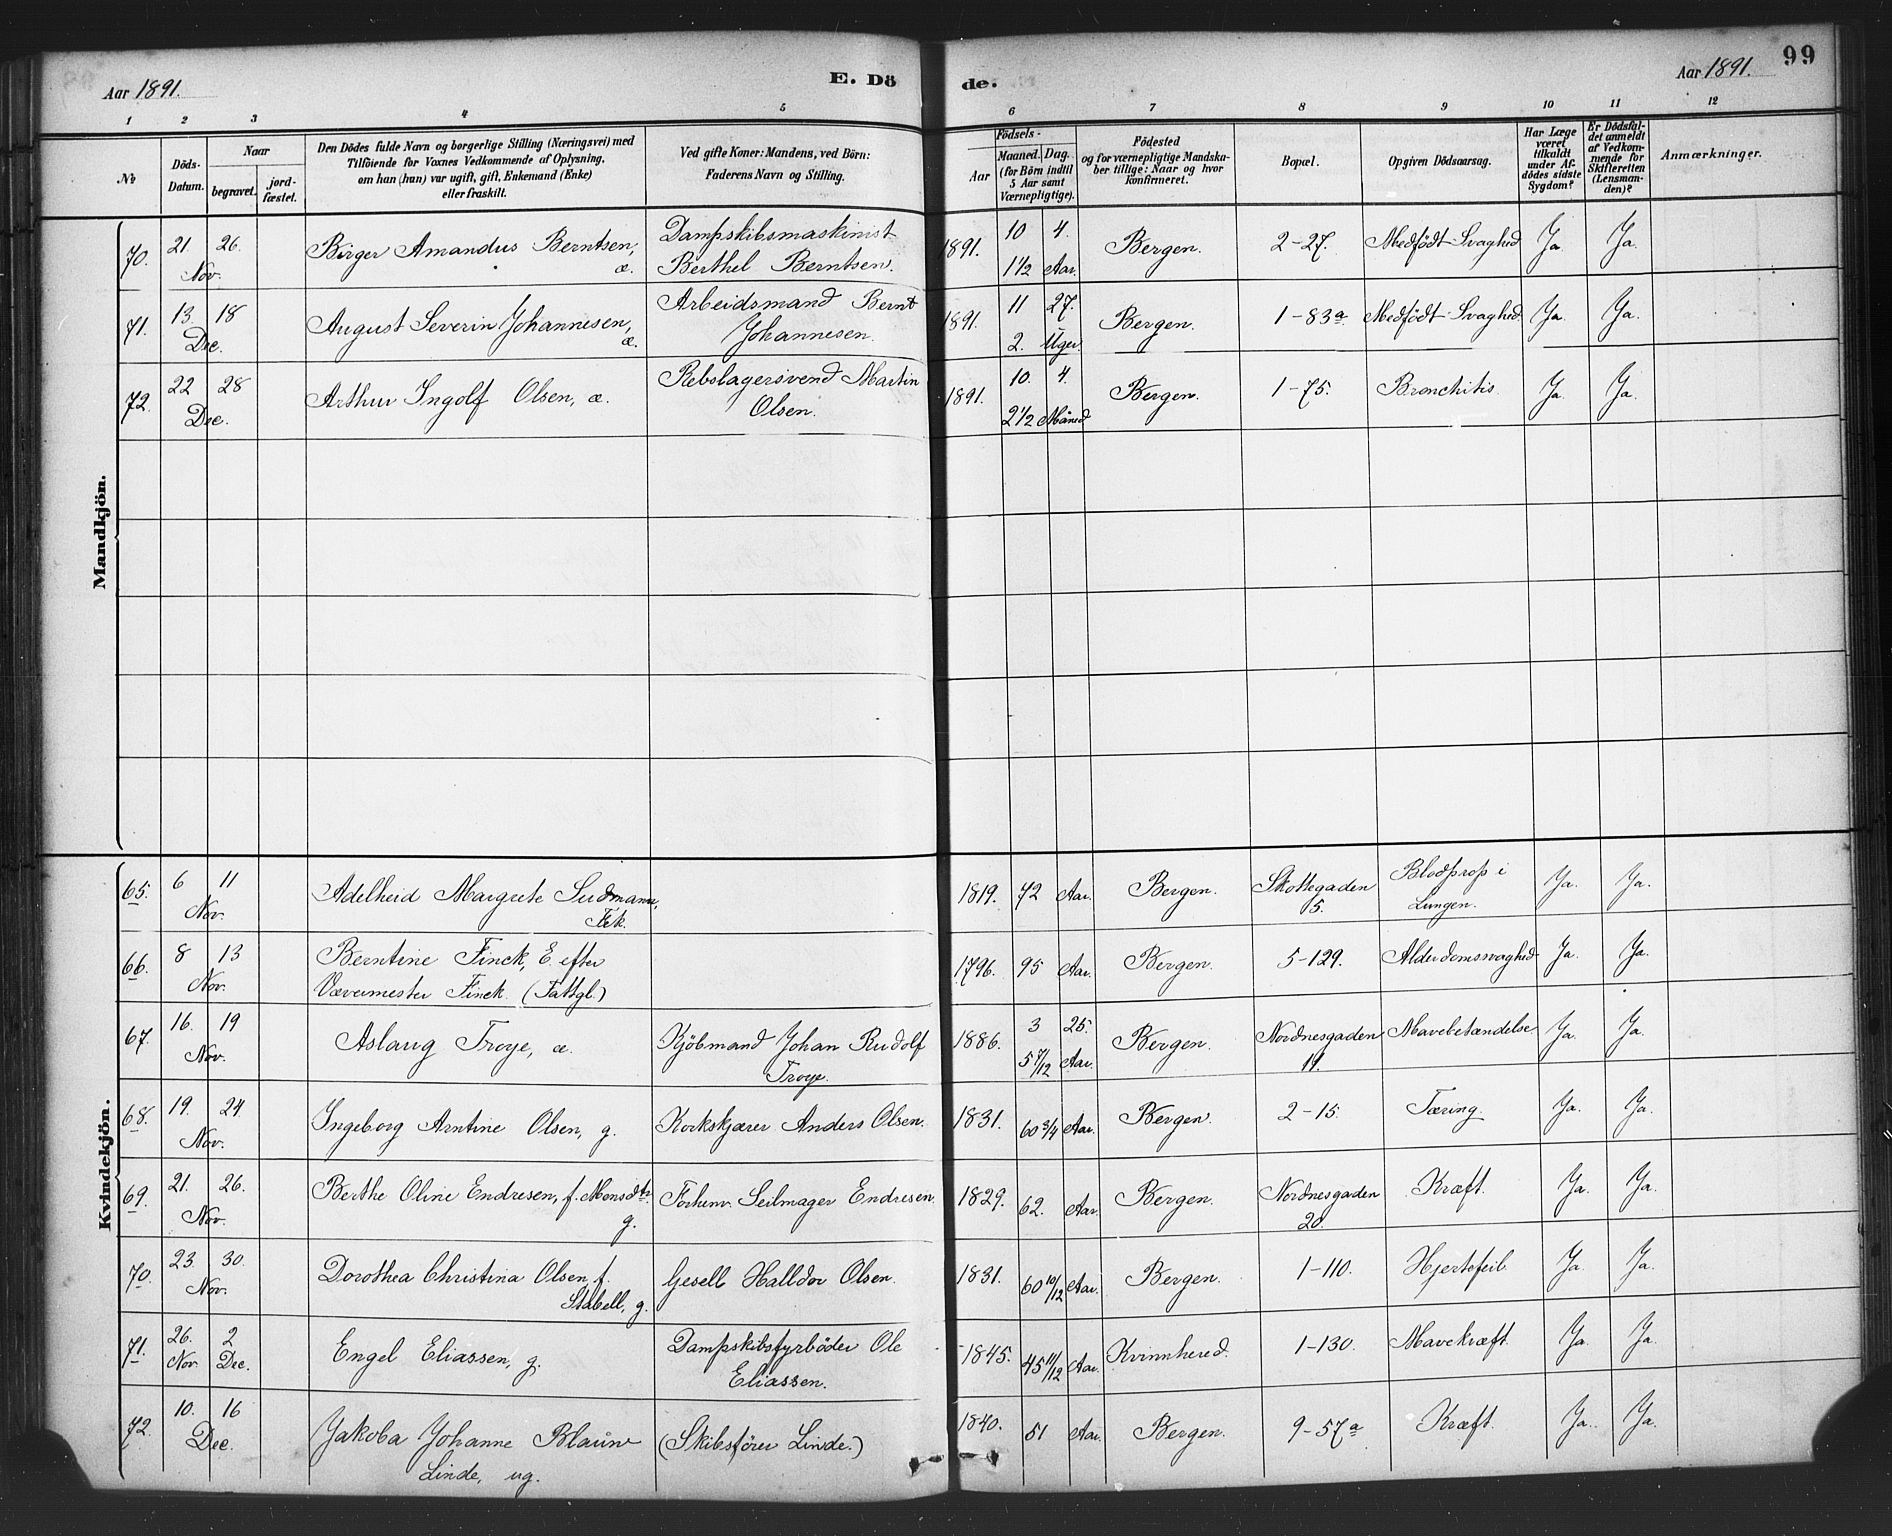 Aar 1891.
E. Dö
de.
Aar 1891.
99
1 2 3 4 5 6 7 8 9 10 11 12
No
Döds-
Datum.
Naar
begravet.
jord-
fæstet.
Den Dödes fulde Navn og borgerlige Stilling (Næringsvei) med
Tilföiende for Voxnes Vedkommende af Oplysning,
om han (hun) var ugift, gift, Enkemand (Enke)
eller fraskilt.
Ved gifte Koner: Mandens, ved Börn:
Faderens Navn og Stilling.
Födsels-
Aar
Maaned. Dag.
(for Börn indtil
5 Aar samt
Værnepligtige).
Födested
og for værnepligtige Mandska-
ber tillige: Naar og hvor
konfirmeret.
Bopæl.
Opgiven Dödsaarsag.
Har Læge
været
tilkaldt
under Af-
dödes sidste
Sygdom?
Er Dödsfal-
det anmeldt
af Vedkom-
mende for
Skifteretten
(Lensman-
den)?
Anmærkninger.
Mandkjön.
70. 21 26. Birger Amandus Berntsen, Dampskibsmaskinist 1891. 10 4. Bergen. 2-27. Medfödt Svaghed Ja Ja.
Nov. æ. Berthel Berntsen. 1 1/2 Aar.
71. 13 18 August Severin Johannesen, Arbeidsmand Bernt 1891. 11 27. Bergen. 1-83a. Medfödt Svaghed. Ja. Ja.
Dec. æ. Johannesen. 2. Uger.
72. 22 28 Arthur Ingolf Olsen, æ. Rebslagersvend Martin 1891. 10. 4. Bergen. 1-75. Bronchitis. Ja. Ja.
Dec. Olsen. 2 1/2 Måned
Kvindekjön.
65. 6 11 Adelheid Margrete Sudmann, 1819. 72 Aar. Bergen. Skottegaden Blodprop i Ja. Ja.
Nov. Frk. 15. Lungen.
66. 8 13 Berntine Finck, E. efter 1796. 95 Aar. Bergen. 5-129. Alderdomssvaghed Ja. Ja.
Nov. Vævermester Finck. (Fattgl.)
67. 16. 19 Aslaug Troye, æ. Kjöbmand Johan Rudolf 1886. 3 25. Bergen. Nordnesgaden Mavebetændelse Ja. Ja.
Nov. Troye. 5 7/12 Aar. 11.
68. 19. 24. Ingeborg Arntine Olsen, g. Korkskjærer Anders Olsen. 1831. 60 3/4 Aar. Bergen. 2-15. Tæring. Ja. Ja.
Nov.
69. 21. 26. Berthe Oline Endresen, f. Monsdtr. Forhenv. Seilmager Endresen. 1829. 62. Aar. Bergen. Nordnesgaden Kræft. Ja. Ja.
Nov. g. 20.
70. 23. 30. Dorothea Christina Olsen, f. Gesell Halldor Olsen. 1831. 60 10/12 Aar. Bergen. 1-110. Hjertefeil. Ja. Ja.
Nov. Stabell, g.
71. 26. 2 Engel Eliassen, g. Dampskibsfyrböder Ole 1845. 45 11/12 Aar. Kvinnhered. 1-130. Mavekræft. Ja. Ja.
Nov. Dec. Eliassen.
72. 10. 16 Jakoba Johanne Blauw (Skibsförer Linde.) 1840. 51 Aar. Bergen. 9-57a. Kræft. Ja. Ja.
Dec. Linde, ug.